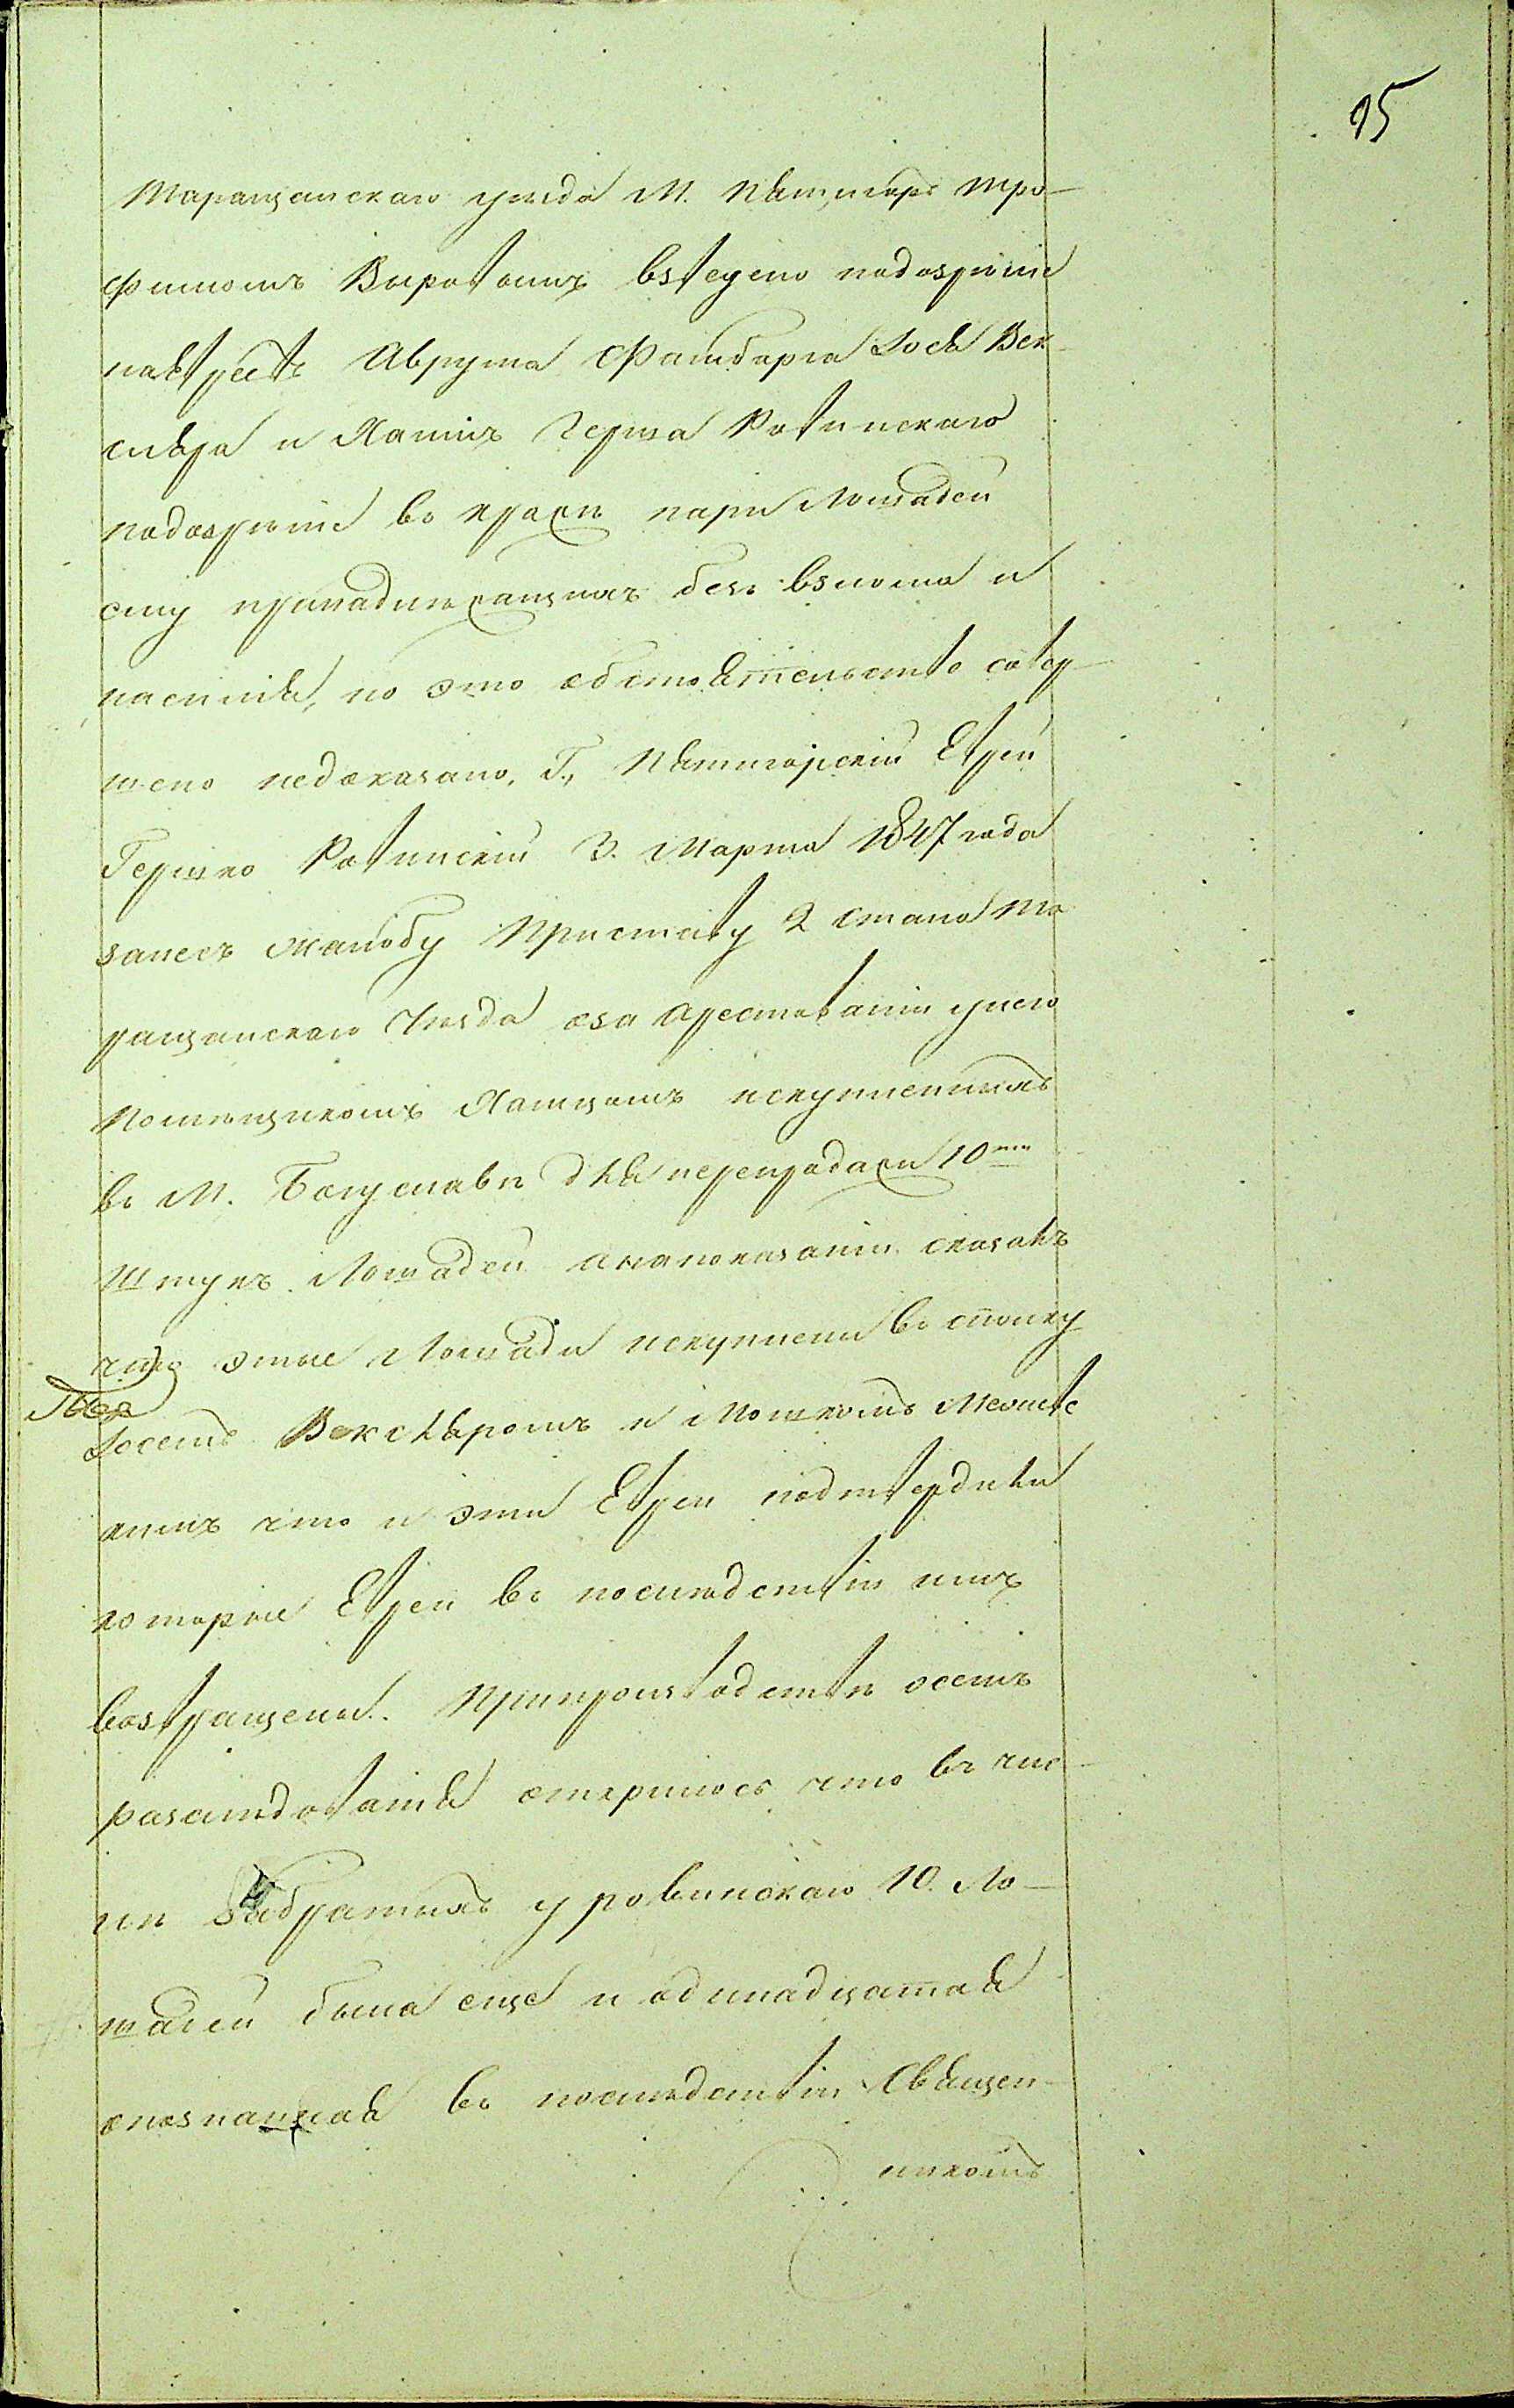 95
Таращанскаго уезда М. Пятигоръ Тро-
фимомъ Вировымъ взведено подозреніе
на Евреевъ Аврума Фаинберга Іося Век-
сляра и Хаимъ Герша Ровинскаго
подозреніе въ кражѣ пары Лошадей
ему принадлежащихъ безъ взлома и
насилія, но это обстоятельство совер-
шено недоказано, Г., Пятигорскій Еврей
Гершко Ровинскій 3. Марта 1847 года
занесъ жалобу Приставу 2 стана Та
ращанскаго Уѣзда оза арестованіи унего
Помѣщикомъ искупленныхъ
въ М. Богуславѣ для перепродажи 10ти
Штукъ Лошадей анапоказаніи сказалъ
что этые Лошади искуплени въ спольку
Іосемъ Вексляромъ и Мошкомъ
кимъ что и эти Евреи подтвердили
которые Евреи въ послѣдствіи имъ
возвращены. Припроизводствѣ осемъ
разслѣдованія открилось что въ чис-
лѣ забратыхъ у ровинскаго 10. Ло-
шадей была еще и одинадцатая
опознанная въ послѣдствіи Священ-
никомъ